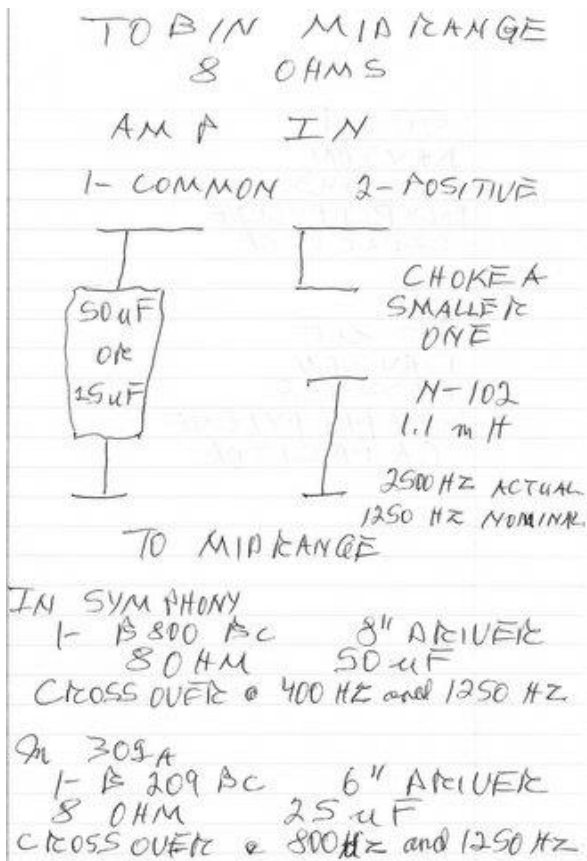 TOBIN MIDRANGE
8 OHMS
AMP IN
1- COMMON 2- POSITIVE
50uF
OR
15uF
CHOKE A
SMALLER
ONE
N-102
1.1 mH
2500 HZ ACTUAL
1250 HZ NOMINAL
TO MIDRANGE
IN SYMPHONY
1- B 800 BC 8" DRIVER
8 OHM 50 uF
CROSSOVER @ 400 HZ and 1250 HZ
In 309A
1- B 209 BC 6" DRIVER
8 OHM 25 uF
CROSSOVER @ 800Hz and 1250 HZ